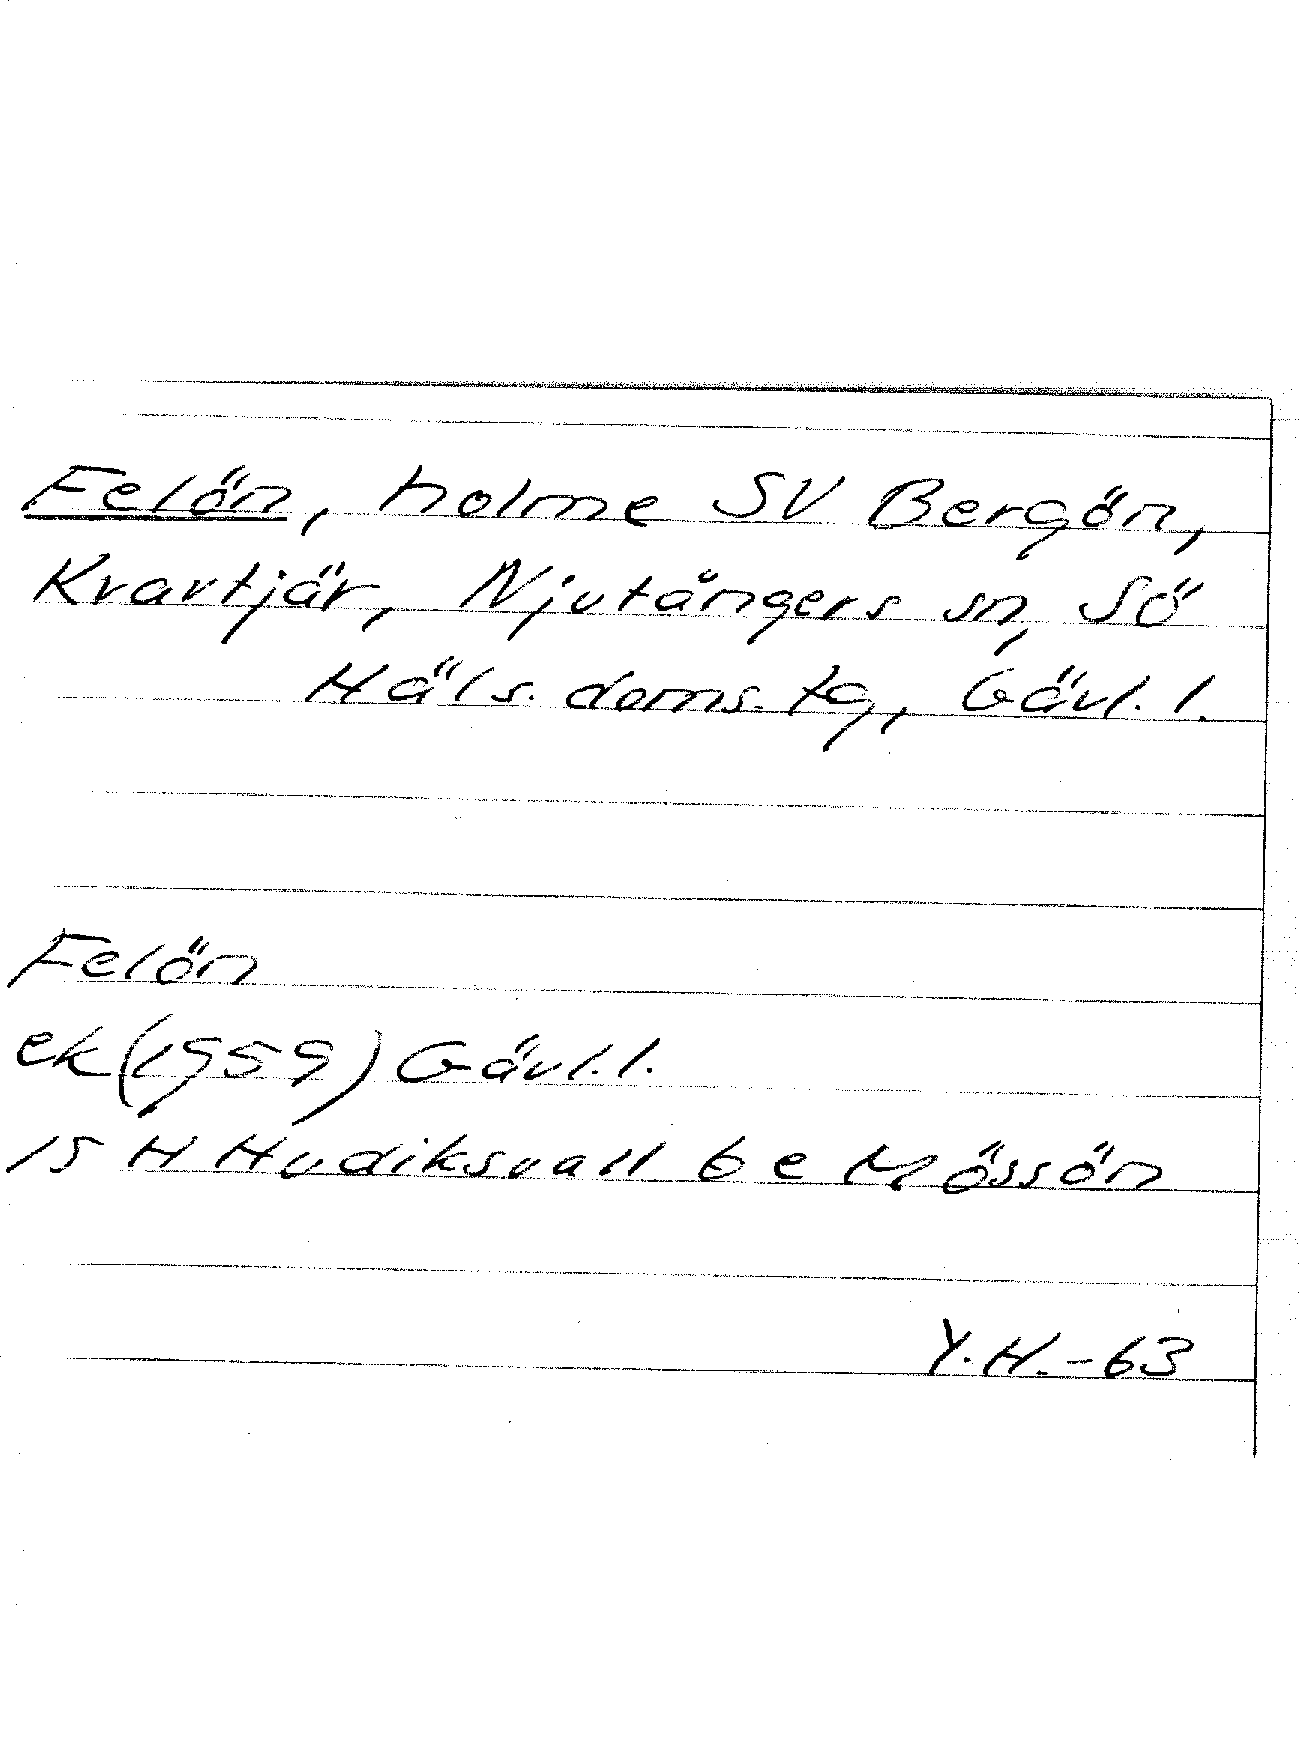 Felön, holme SV Bergön,
Kvartjär, Njutångers sn, SÖ
Häls. doms. tg, Gävl. l.
Felön
ek (1959) Gävl. l.
15 H Hudiksvall 6 e Mössön
Y.H.-63